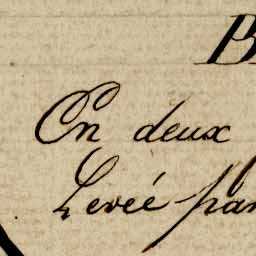 En deux
Levée par